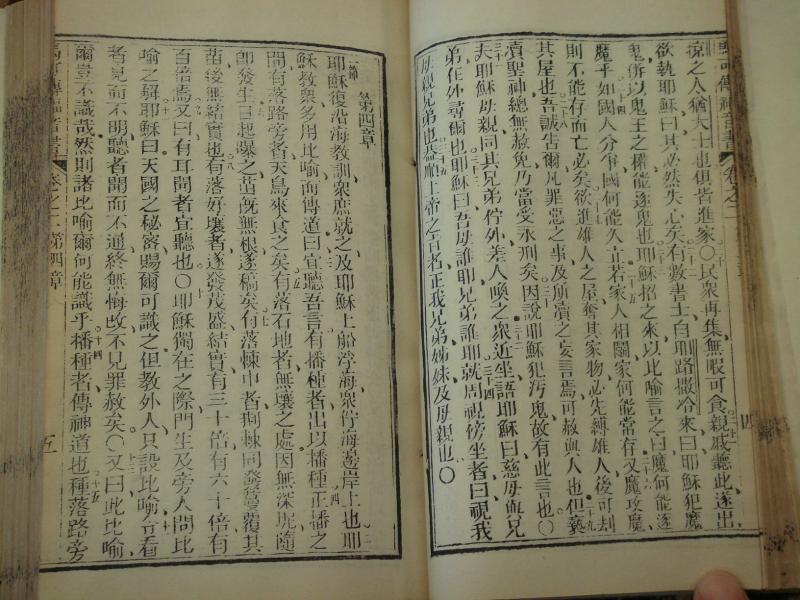 掠之人猶大士也俱皆進家〇民眾再集無暇可食親戚聽此遂出
欲執耶穌曰其必然失心矣有數書士自耶路撒冷來曰耶穌犯魔
鬼併以鬼王之權能逐鬼也耶穌招之來以比喻言之曰魔何能逐
魔乎如國人分爭國何能久立若家人相鬬家何能常存又魔攻魔
則不能存而亡必矣欲進雄人之屋奪其家物必先縛雄人後可刦
其屋也吾誠告爾凡罪惡之事及所瀆之妄言焉可赦與人也但褻
瀆聖神總無赦免乃當受永刑矣因說耶穌犯污鬼故有此言也〇
夫耶穌母親同其兄弟佇外差人喚之眾近坐語耶穌曰慈母與兄
弟在外尋爾也耶穌曰吾母誰耶兄弟誰耶就周視傍坐者曰視我
母親兄弟也蓋順上帝之旨者正我兄弟姊妹及母親也〇
第四章
一節
耶穌復沿海教訓眾庶就之及耶穌上船浮海眾佇海邊岸上也耶
穌教眾多用比喻而傳道曰宜聽吾言有播種者出以播種正播之
間有落路旁者天鳥來食之矣有落石地者無壤之處因無深坭隨
即發生日起曝之苗旣無根遂槁矣有落棘中者荆棘同發蔓覆其
苗後無結實也有落好壤者遂發茂盛結實有三十倍有六十倍有
百倍焉又曰有耳聞者宜聽也〇耶穌獨在之際門生及旁人問比
喻之解耶穌曰天國之秘密賜爾可識之但教外人只設比喻令看
者見而不明聽者聞而不通終無悔改不見罪赦矣〇又曰此比喻
爾豈不識哉然則諸比喻爾何能識乎播種者傳神道也種落路旁
馬可傳福音書
卷之二 第四章
五